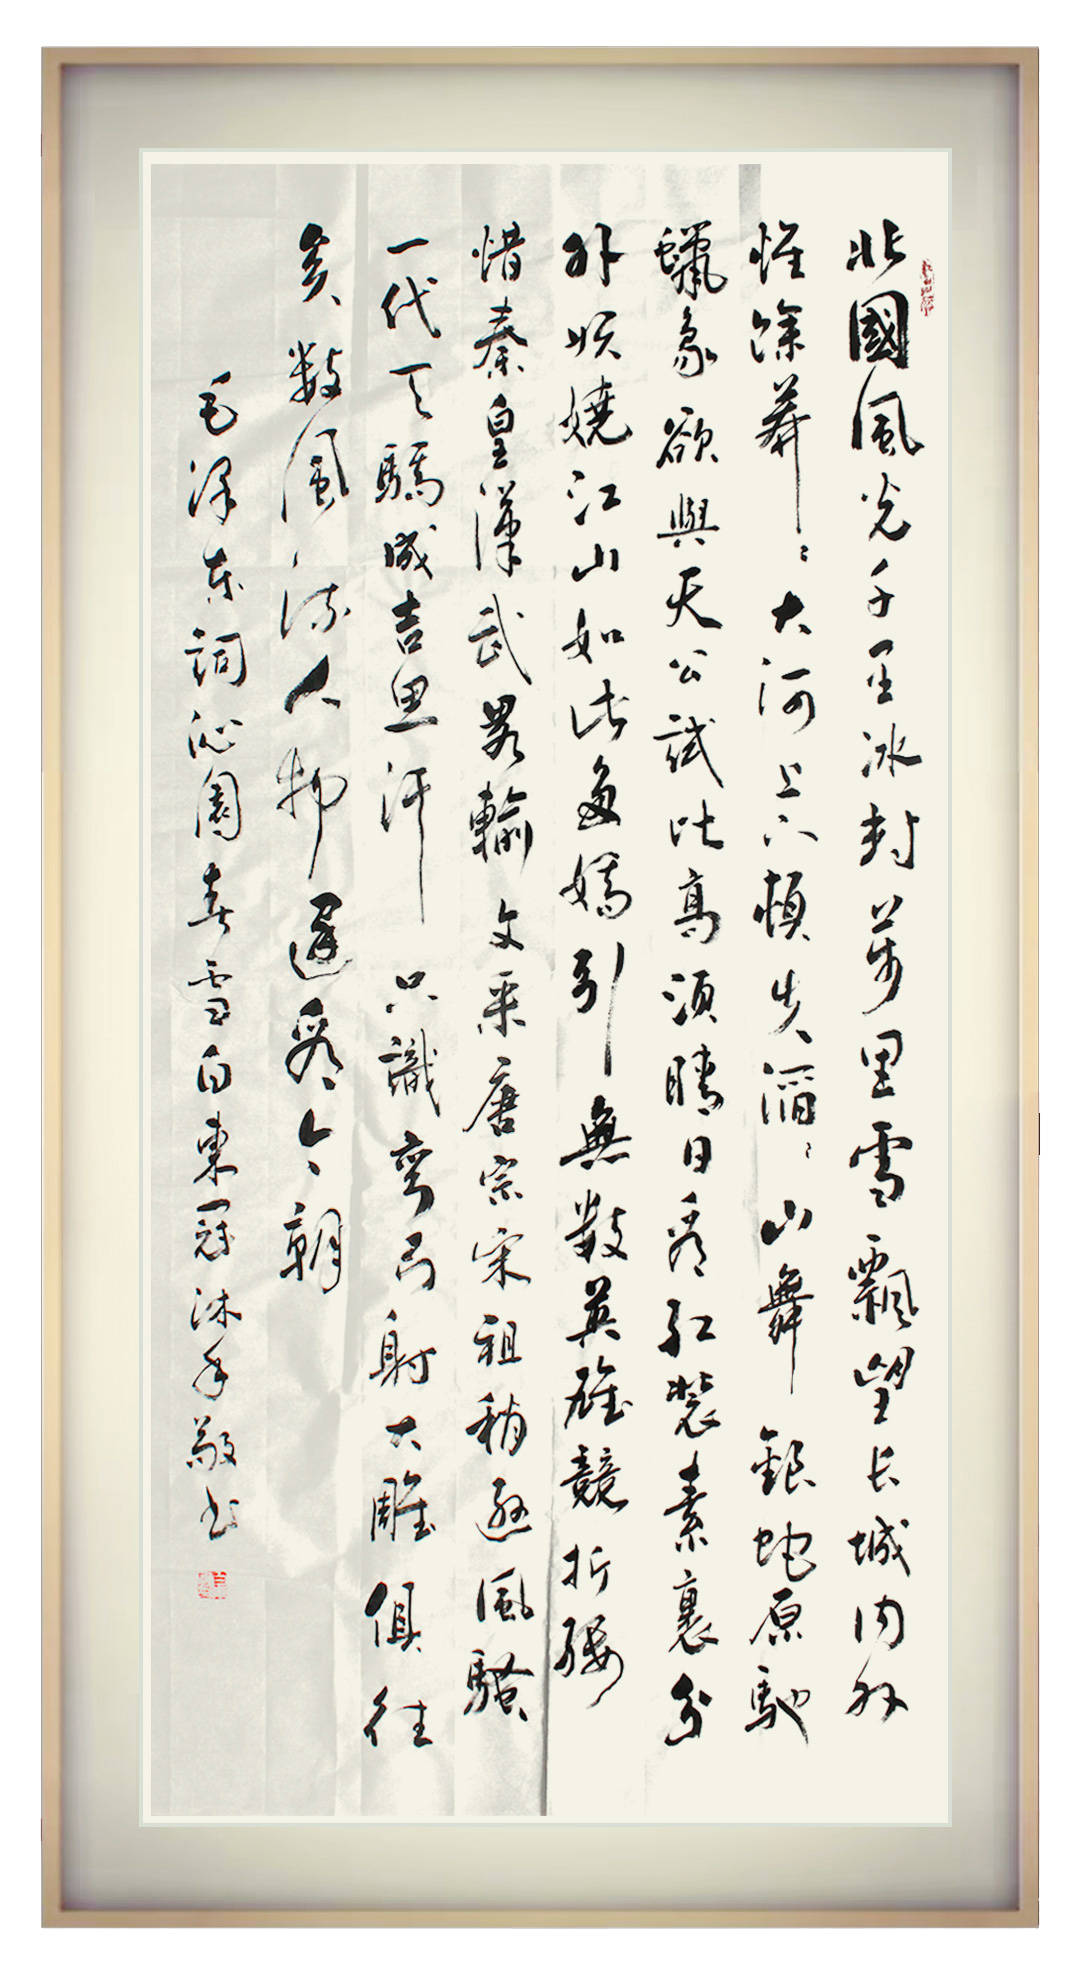 北國風光千里冰封萬里雪飄望长城内外
惟餘莽〻大河上下頓失滔〻山舞銀蛇原馳
蠟象欲與天公試比高須晴日看紅裝素裹分
外妖嬈江山如此多嬌引無數英雄競折腰
惜秦皇漢武畧輸文采唐宗宋祖稍遜風騷
一代天驕成吉思汗只識彎弓射大雕俱往
矣數風流人物還看今朝
毛泽东詞沁園春雪白東冠沐手敬书